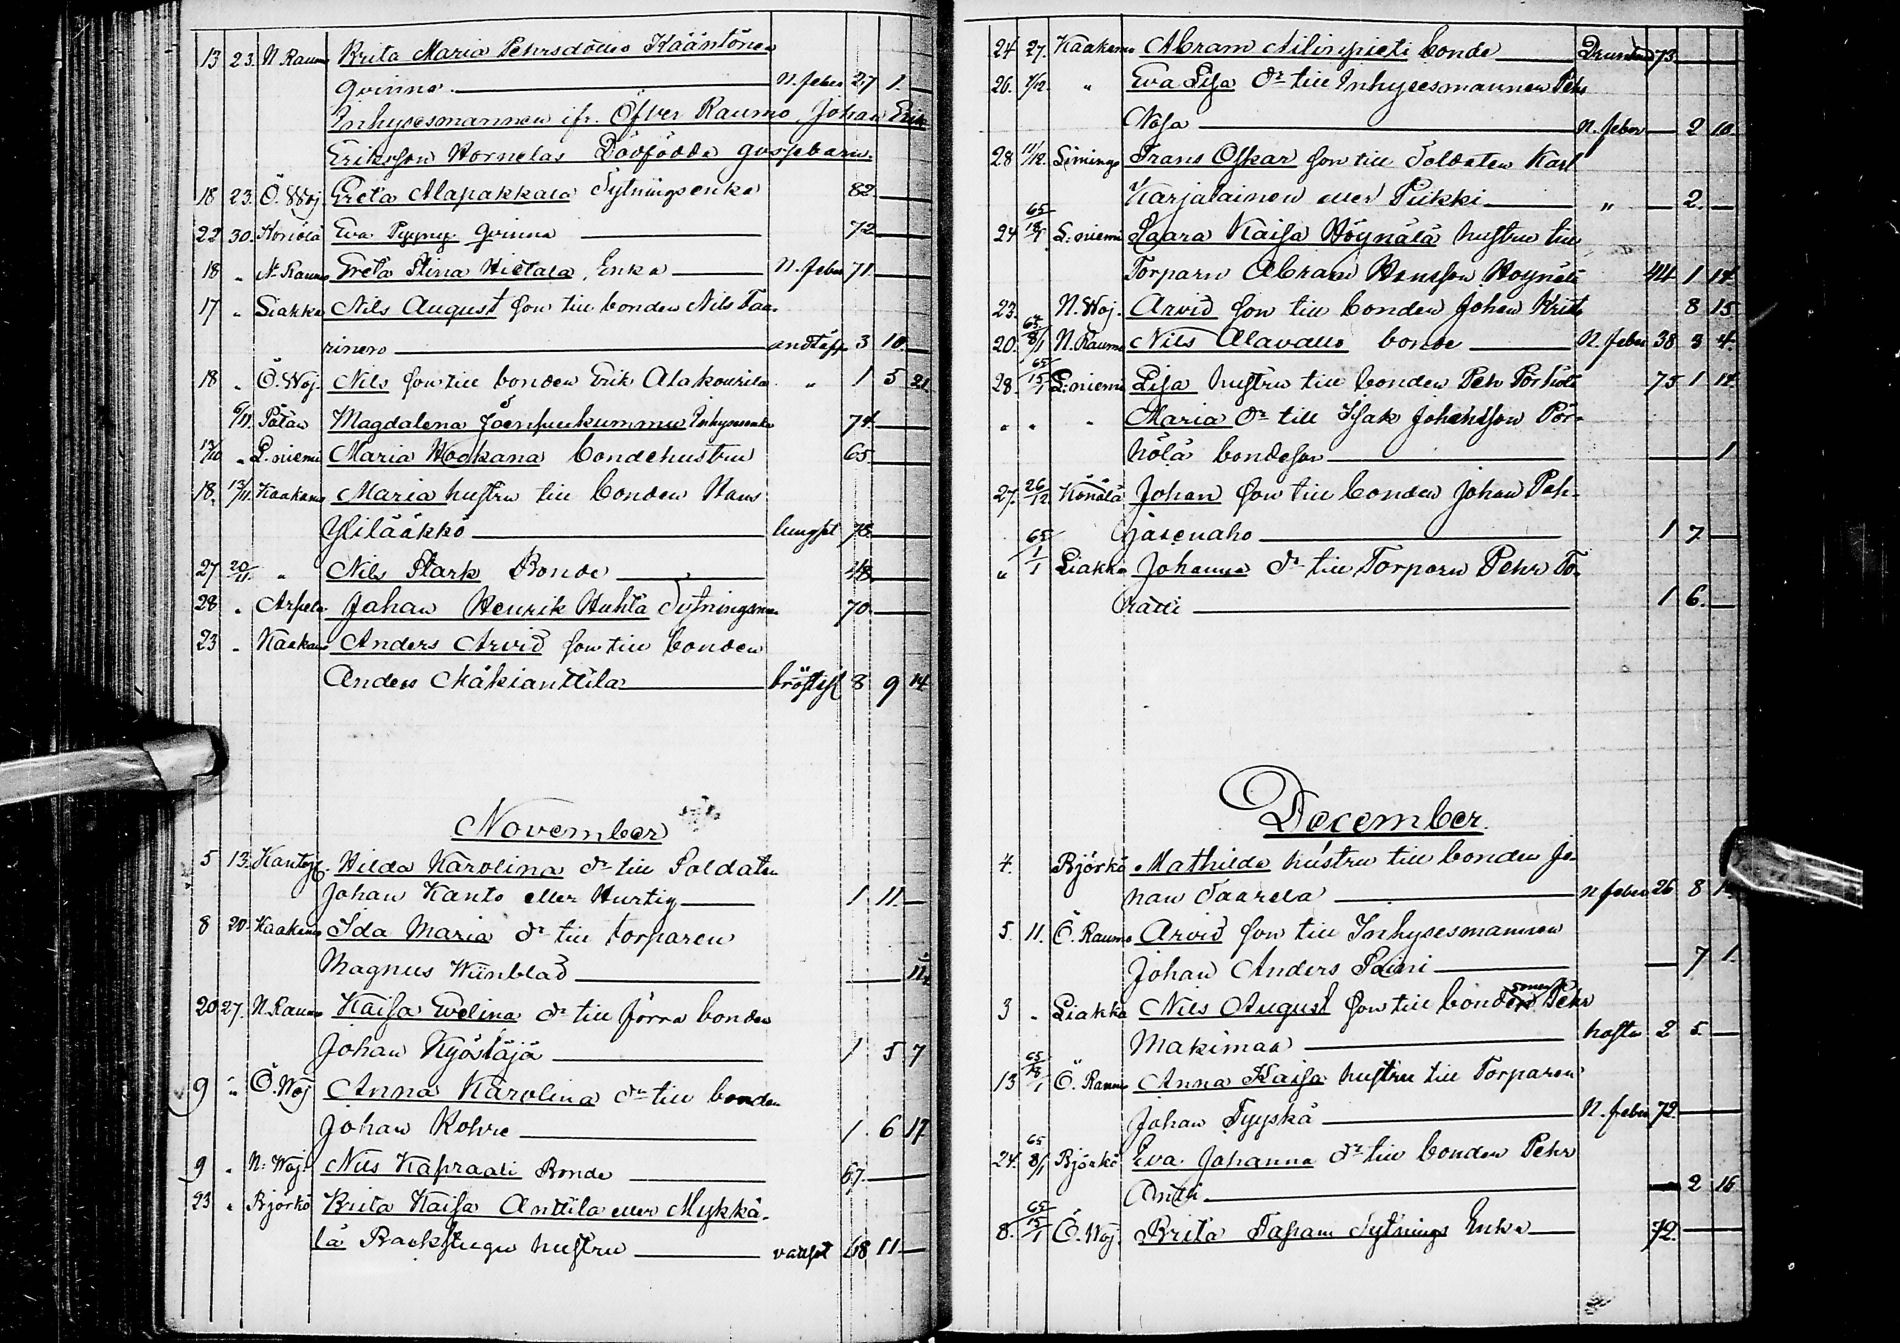 13 23. N. Raumo Brita Maria Pehrsdotter Kääntönen
qvinna. N. feber 27 1.
Inhysesmannen ifr. Öfver Raumo, Johan Erik
Eriksson Hornelas Dödfödda gossebarn.
18 23. Ö. Woj. Greta Alapakkala Sytningsenka 82.
22 30. Könölä Eva Pyyny qvinna 72
18 " N. Raumo Greta Stina Hietala, Enka N. feber 71.
17 " Liakka Nils August son till bonden Nils Taa-
rinen andtäpp 3 10.
18 " Ö. Woj. Nils son till bonden Erik Alakourila " 1 5 21
6/11. Pålan Magdalena Inhysesenka 74
13/10 " L:niemi Maria Hookana bondehustru 65.
18. 13/11. Kaakamo Maria hustru till bonden Hans
Ylilääkkö lungsot 78
27 20/11. " Nils Stark Bonde 48.
28 " Arpela Johan Henrik Huhta Sytningsman 70.
23 " Kaakamo Anders Arvid son till bonden
Anders Mäkianttila bröstsj 8 9 14
November
5 13. Hilda Karolina dr till Soldaten
Johan Kanto eller Hurtig 1 11.
8 20. Kaakamo Ida Maria dr till torparen
Magnus Wiinblad 11.
20 27. N. Raumo Kaisa Evelina dr till förra bonden
Johan Kyöstäjä 1 5 7
9 " Ö. Woj Anna Karolina dr till bonden
Johan Rohre 1 6 17
9 " N: Woj. Nils Kapraali Bonde 67.
23 " Björkö Brita Kaisa Anttila eller Mykkä-
lä Backstugu hustru vattsot 68 11
24 27. Kaakamo Abram Ailinpieti bonde Drunknad 73.
26. 7/12. " Eva Lisa dr till Inhysesmannen Pehr
Nosa N. feber 2 10.
28 11/12. Liminge Frans Oskar son till Soldaten Karl
Karjalainen eller Piikki " 2.
24 65 L:niemi Saara Kaisa Höynälä hustru till
Torparn Abram Hansson Höynälä 44 1 14
23. N. Woj. Arvid son till bonden Johan 8 15
20. 65 8/1 N. Raumo Nils Alavallo bonde N. feber 38 3 4.
28 65 15/1 L:niemi Lisa hustru till bonden Pehr Pörhölä 75 1 14
" " " Maria dr till Isak Johansson Pör-
hölä bondeson 1
27. 26/12 Könölä Johan son till bonden Johan Peh-
jäsenaho 1 7.
" 65 1/1 Liakka Johanna dr till Torparn Pehr To-
ratti 1 6.
December
4. Björkö Mathilda hustru till bonden Jo-
han Saarela N feber 26 8
5. 11. Ö. Raumo Arvid son till Inhysesmannen
Johan Anders Pauni 7 1.
3 " Liakka Nils August son till bonden Pehr
Makimaa hosta 2 5.
13 65 Ö. Raumo Anna Kaisa hustru till Torparen
Johan Tyyskä N. feber 72.
24. 65 8/1 Björkö Eva Johanna dr till bonden Pehr
Antti 2 16
8. 65 15/1 Ö. Woj Brita Tapani Sytnings Enka 72.